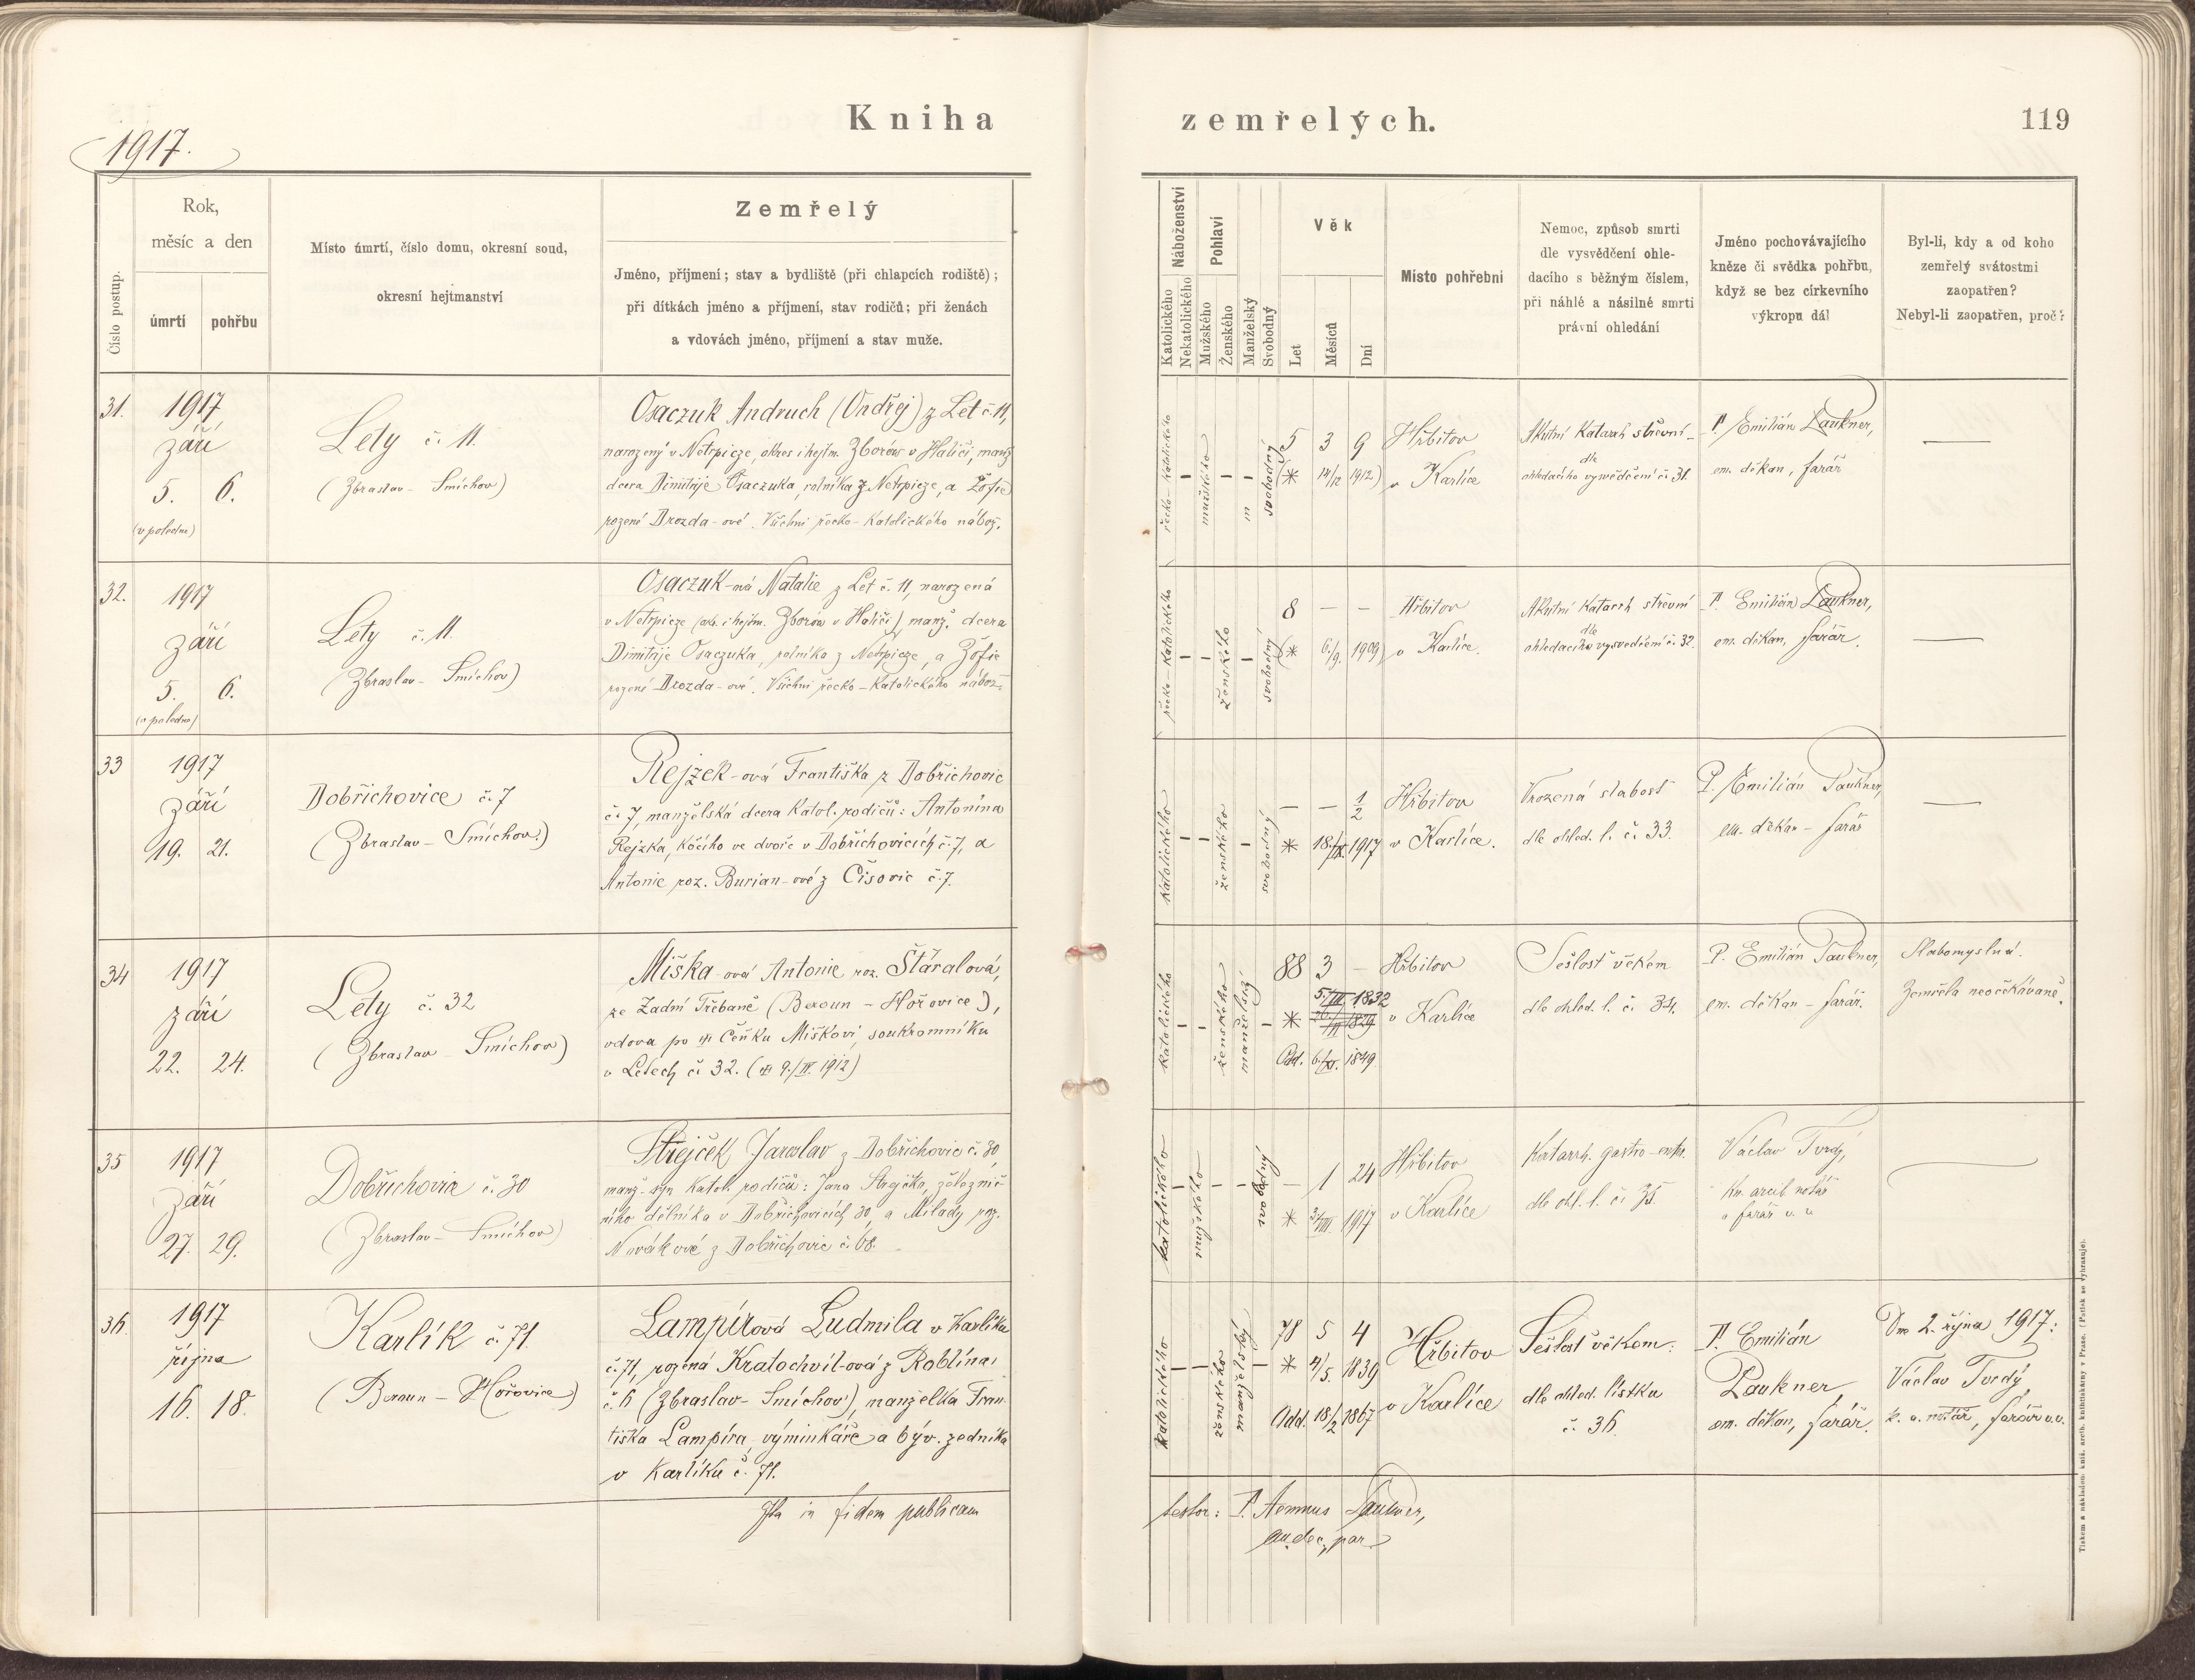 Kniha
1917.
Číslo postup.
Rok,
měsíc a den
úmrtí
pohřbu
Místo úmrtí, číslo domu, okresní soud,
okresní hejtmanství
Zemřelý
Jméno, příjmení; stav a bydliště (při chlapcích rodiště);
při dítkách jméno a příjmení, stav rodičů; při ženách
a vdovách jméno, příjmení a stav muže.
31.
1917
září
5. 6.
(v poledne)
Lety č. 11.
(Zbraslav - Smíchov)
Osaczuk Andruch (Ondřej) z Let č. 11,
narozený v Netrpicze, okres i hejtm. Zborów v Haliči, manž
dcera Dimitrije Osaczuka, rolníka z Netrpicze, a Žofie
rozené Drozda-ové. Všichni řecko-katolického nábož.
32.
1917
září
5. 6.
(v poledne)
Lety č. 11.
(Zbraslav - Smíchov)
Osaczuk-ová Natalie z Let č. 11, narozená
v Netrpicze (okr. i hejtm. Zborów v Haliči) manž. dcera
Dimitrije Osaczuka, rolníka z Netrpicze, a Žofie
rozené Drozda-ové. Všichni řecko-katolického nábož.
33
1917
září
19. 21.
Dobřichovice č. 7
(Zbraslav - Smíchov.)
Rejžek-ová Františka z Dobřichovic
č. 7, manželská dcera katol. rodičů: Antonína
Rejžka, kočího ve dvoře v Dobřichovicích č. 7, a
Antonie roz. Burian-ové z Čisovic č. 7.
34
1917
září
22. 24.
Lety č. 32
(Zbraslav - Smíchov)
Miška-ová Antonie roz. Šťáralová,
ze Zadní Třebaně (Beroun - Hořovice),
vdova po Čeňku Miškovi, soukromníku
v Letech č. 32. ( 9./IV. 1912)
35
1917
září
27. 29.
Dobřichovice č. 30
(Zbraslav - Smíchov)
Strejček Jaroslav z Dobřichovic č. 30
manž. syn katol. rodičů: Jana Strejčka, železnič-
ního dělníka v Dobřichovicích 30, a Milady roz.
Novákové z Dobřichovic č. 68.
36
1917
října
16. 18.
Karlík č. 71.
(Beroun - Hořovice)
Lampírová Ludmila v Karlíku
č. 71, rozená Kratochvíl-ová z Roblína
č. 6 (Zbraslav - Smíchov), manželka Fran-
tiška Lampíra, výminkáře a býv. zedníka
v Karlíku č. 71.
Ita in fidem publicam
zemřelých.
119
Náboženství
Katolického
Nekatolického
Pohlaví
Mužského
Ženského
Manželský
Svobodný
Věk
Let
Měsíců
Dní
Místo pohřební
Nemoc, způsob smrti
dle vysvědčení ohle-
dacího s běžným číslem,
při náhlé a násilné smrti
právní ohledání
Jméno pochovávajícího
kněze či svědka pohřbu,
když se bez církevního
výkropu dál
Byl-li, kdy a od koho
zemřelý svátostmi
zaopatřen?
Nebyl-li zaopatřen, proč?
řecko-katolického
mužského
m
svobodný
5 3 9
(* 14/12 1912)
Hřbitov
v Karlíce
Akutní katarrh střevní
dle
ohledacího vysvědčení č. 31.
P. Emilián Paukner,
em. děkan, farář
—
řecko-katolického
ženského
svobodný
8 — —
(* 6./9. 1909)
Hřbitov
v Karlíce.
Akutní katarrh střevní
dle
ohledacího vysvědčení č. 32.
P. Emilián Paukner,
em. děkan, farář.
—
katolického
ženského
svobodný
— — 1/2
* 18./IX. 1917
Hřbitov
v Karlíce.
Vrozená slabost
dle ohled. l. č. 33.
P. Emilián Paukner,
em. děkan - farář
—
katolického
ženského
manželský
88 3 —
5./III. 1832
* 1829
Odd. 6./XI. 1849
Hřbitov
v Karlíce
Sešlost věkem
dle ohled. l. č. 34.
P. Emilián Paukner,
em. děkan - farář.
Slabomyslná.
Zemřela neočekávaně.
katolického
mužského
svobodný
— 1 24
* 3./VIII. 1917
Hřbitov
v Karlíce
Katarrh. gastro-ent.
dle ohl. l. č. 35.
Václav Tvrdý,
kn. arcib. notář
a farář v. v.
katolického
ženského
manželský
78 5 4
* /5. 1839
Odd. 18/2 1867
Hřbitov
v Karlíce
Sešlost věkem:
dle ohled. lístku
č. 36.
P. Emilián
Paukner,
em. děkan, farář.
Dne 2. října 1917:
Václav Tvrdý,
k. a. notář, farář v.v.
testor: P. Aemilianus Paukner,
em. dec., par.
Tiskem a nákladem kníž. arcib. knihtiskárny v Praze. (Patisk se vyhrazuje).